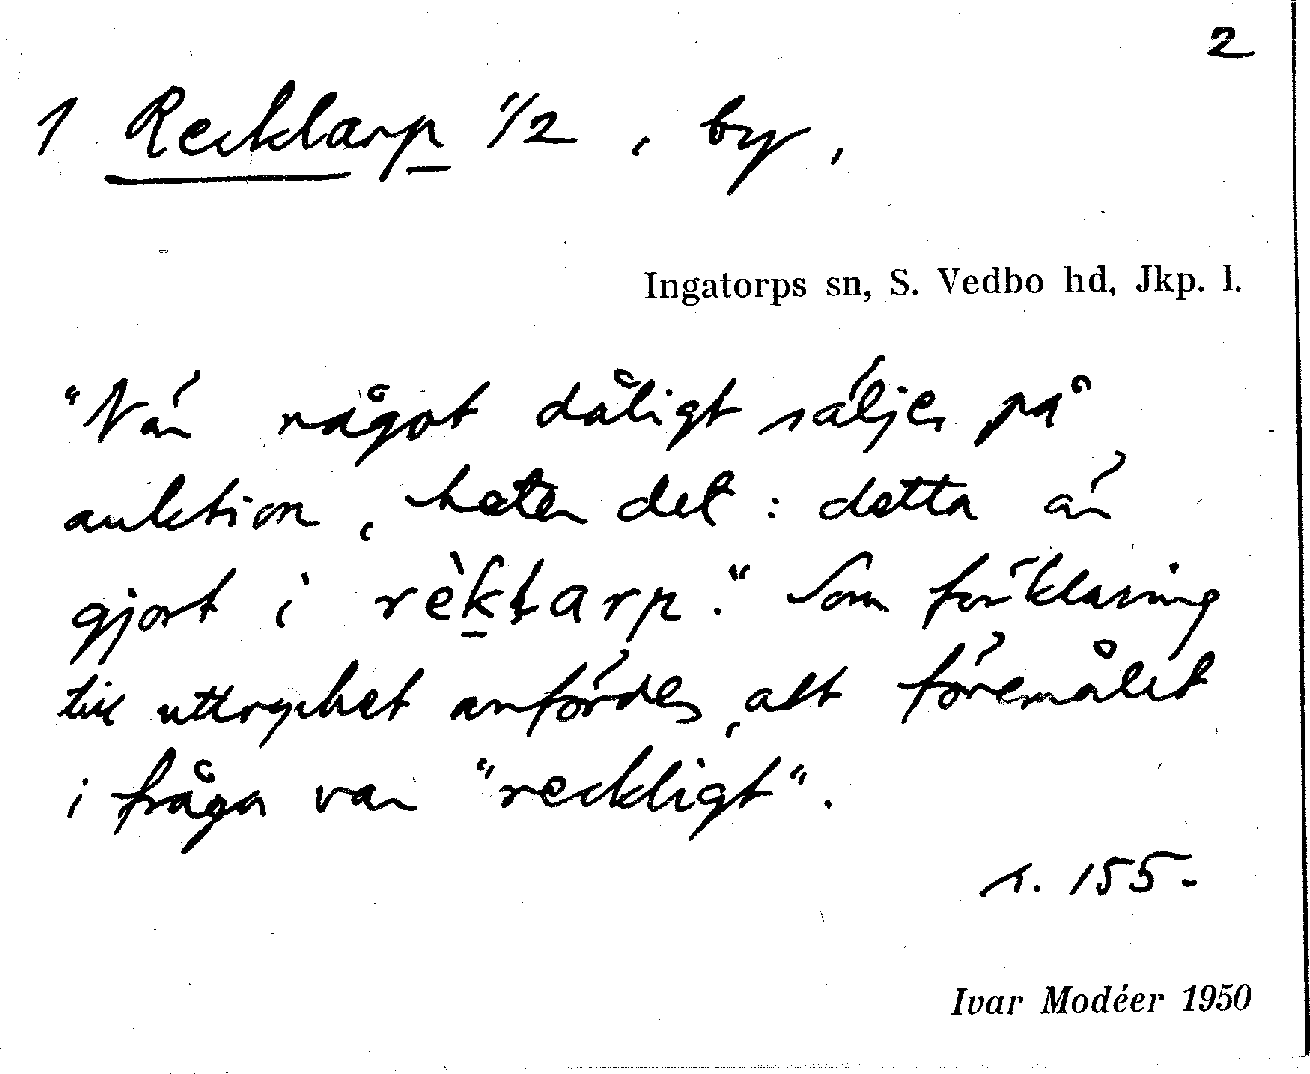 2
1 Recklarp 1/2, by,
Ingatorps sn, S. Vedbo hd, Jkp. l.
"När något dåligt säljes på
auktion, heter det: detta är
gjort i rèktarp." Som förklaring
till uttrycket anfördes, att föremålet
i fråga var "reckligt".
s. 155.
Ivar Modéer 1950